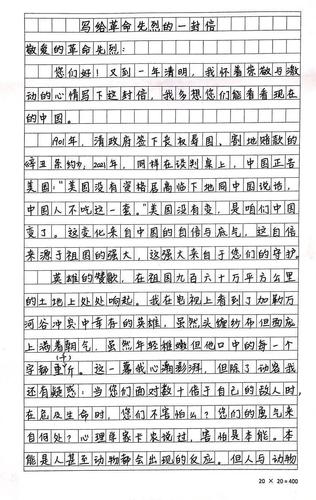 写给革命先烈的一封信
敬爱的革命先烈：
您们好！又到一年清明，我怀着崇敬与激
动的心情写下这封信，我多想您们能看看现在
的中国。
1901年，清政府签下丧权辱国、割地赔款的
《辛丑条约》；2021年，同样在谈判桌上，中国正告
美国："美国没有资格居高临下地同中国说话，
中国人不吃这一套。"美国没有变，是咱们中国
变了。这变化来自中国的自信与底气，这自信
来源于祖国的强大，这强大来自于您们的守护。
英雄的赞歌，在祖国九百六十万平方公里
的土地上处处响起。我在电视上看到了加勒万
河谷冲突中幸存的英雄，虽然头缠纱布但面庞
上满着朝气，虽然年轻稚嫩但他口中的每一个
字都重(千)斤。这一幕我心潮澎湃，但除了动容我
还有疑惑：当您们面对数十倍于自己的敌人时，
在危及生命时，您们不害怕么？您们的勇气来
自何处？心理专家卡农说过，害怕是本能。本
能是人甚至动物都会出现的反应。但人与动物
20 × 20 = 400